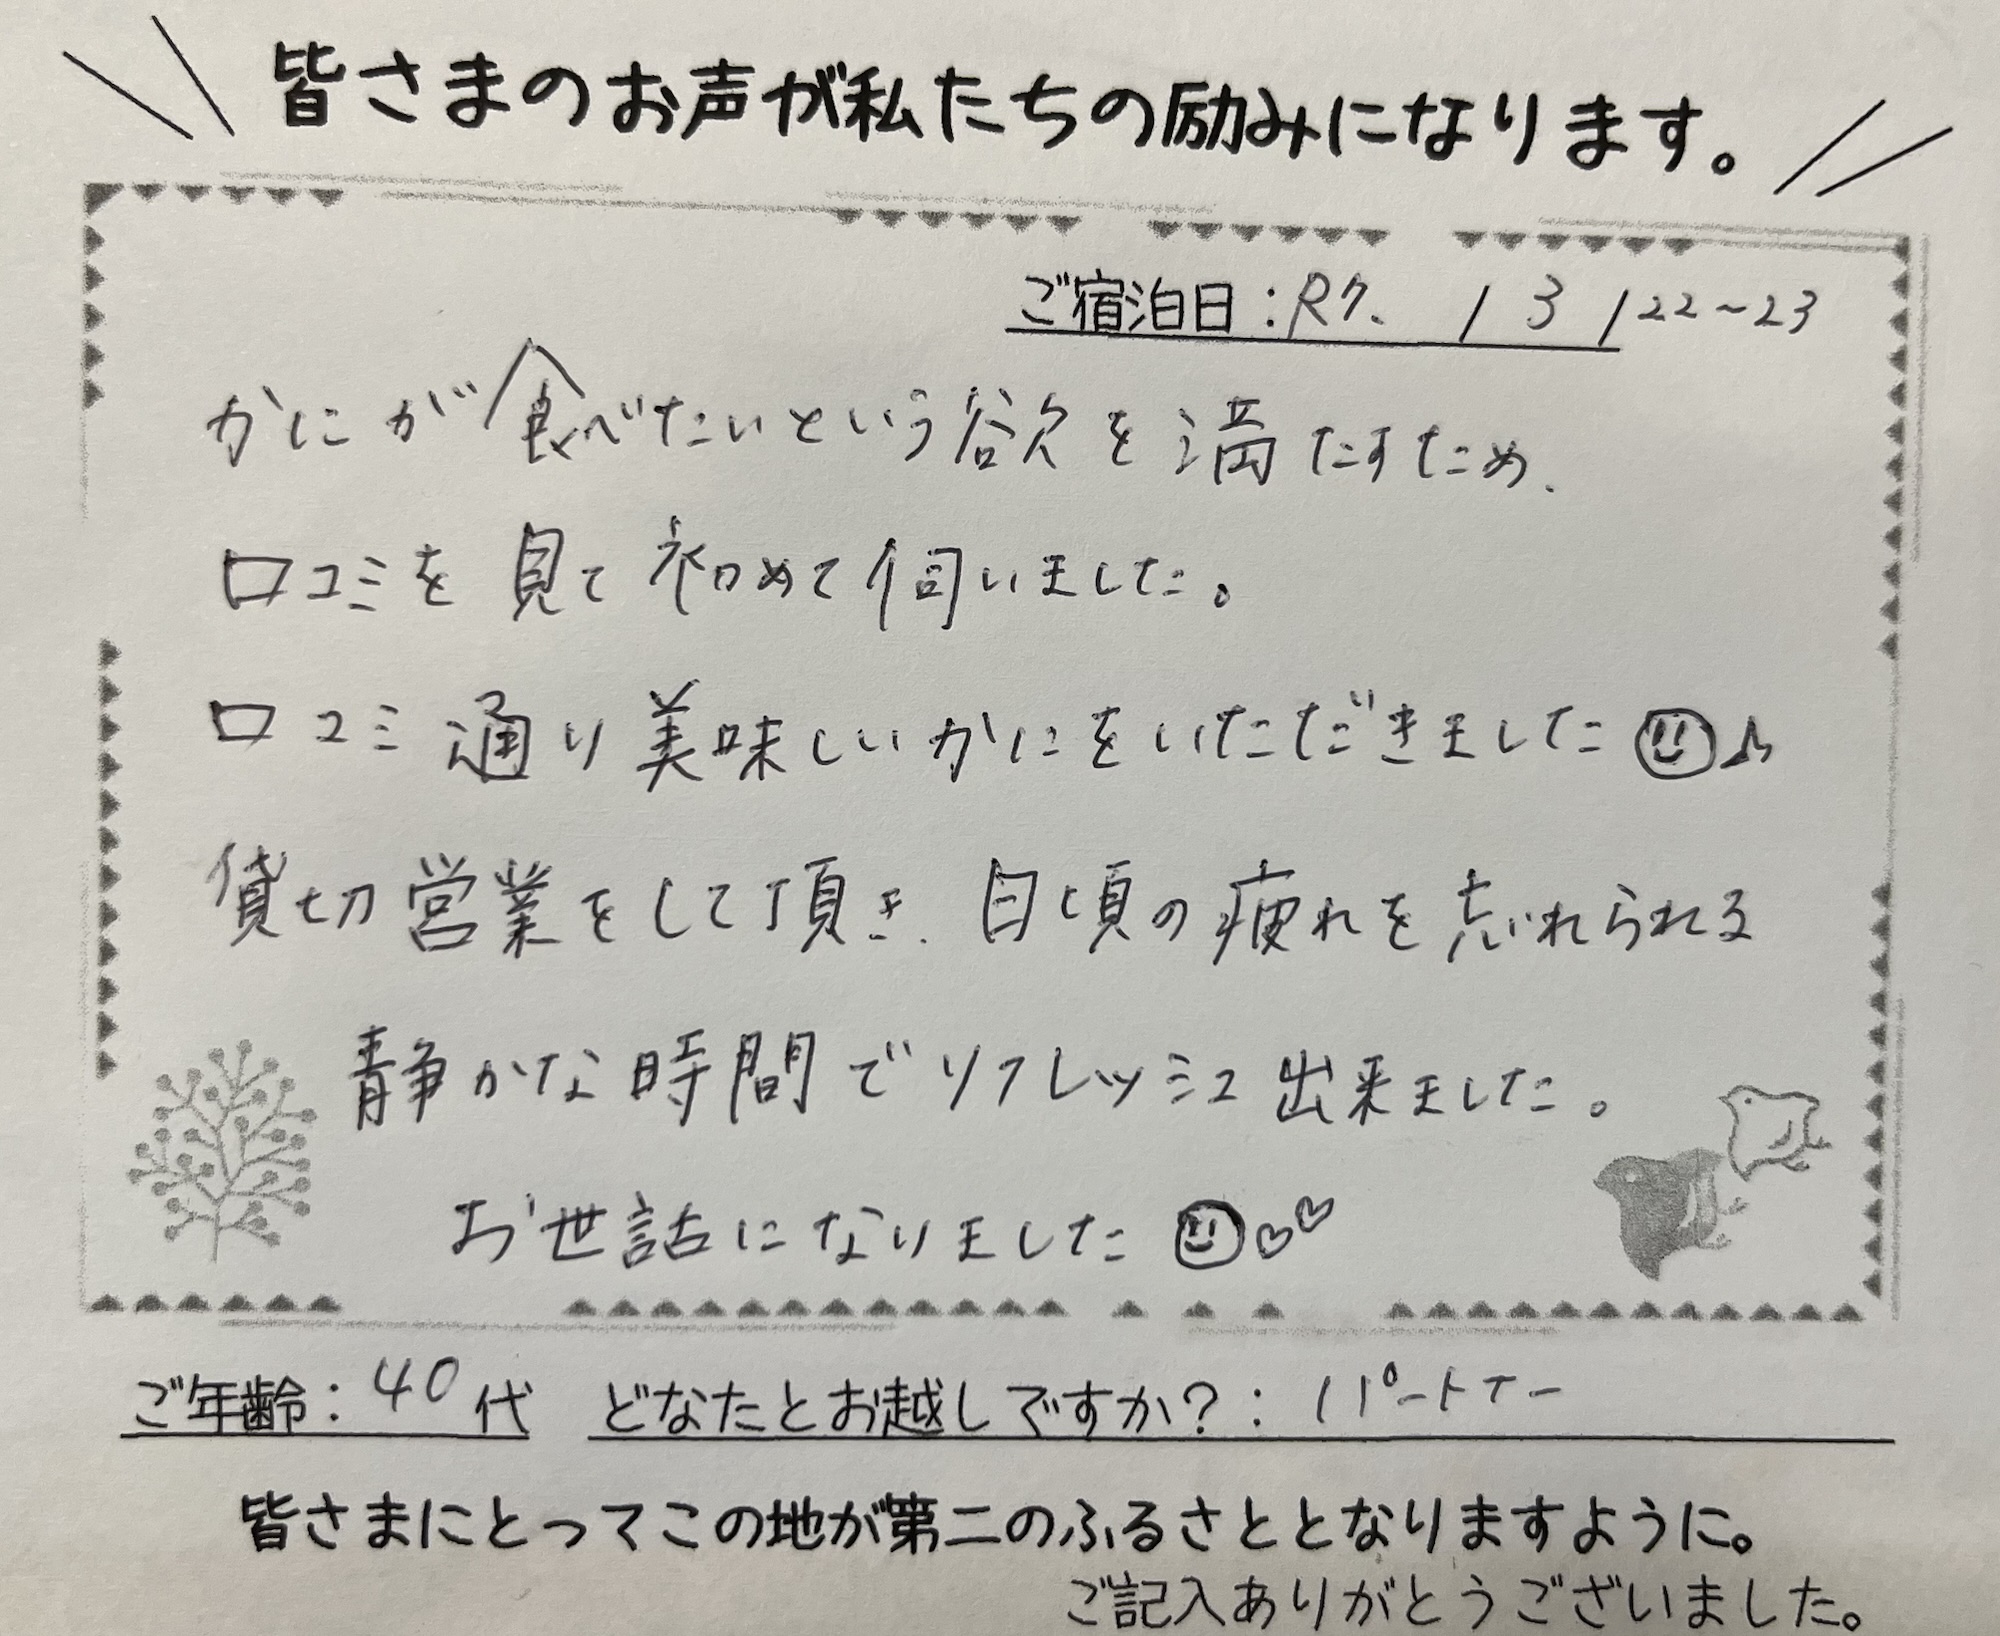 皆さまのお声が私たちの励みになります。
ご宿泊日：R7. / 3 /22～23
かにが食べたいという欲を満たすため、
口コミを見て初めて伺いました。
口コミ通り美味しいかにをいただきました☺♪
貸切営業をして頂き、日頃の疲れを忘れられる
静かな時間でリフレッシュ出来ました。
お世話になりました☺♡♡
ご年齢：40代 どなたとお越しですか？：パートナー
皆さまにとってこの地が第二のふるさととなりますように。
ご記入ありがとうございました。